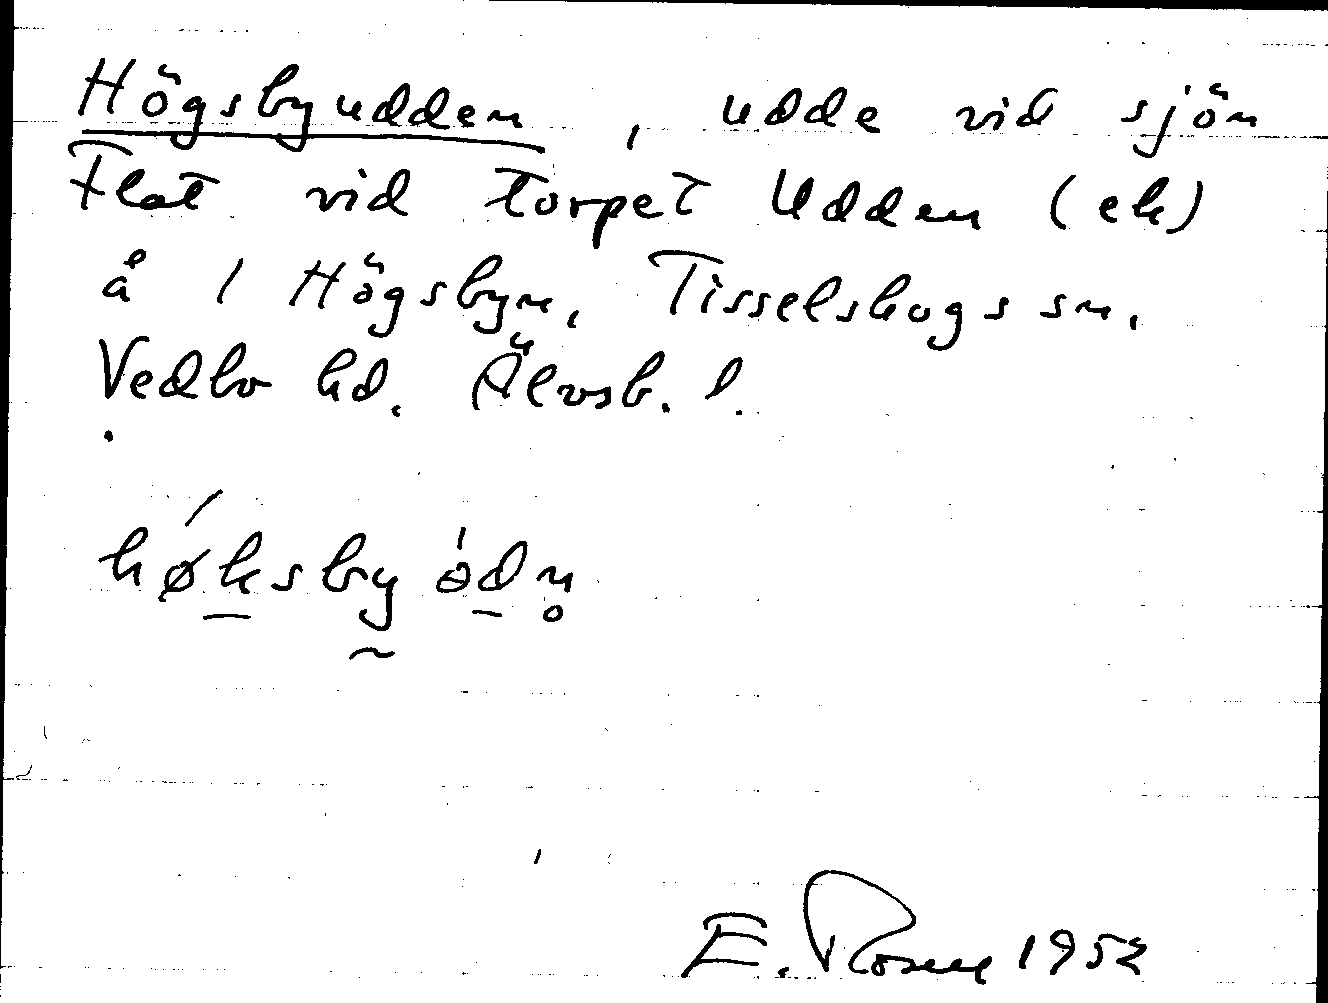 Högsbyudden, udde vid sjön
Flat vid torpet Udden (ek)
å 1 Högsbyn, Tisselskogs sn,
Vedbo hd. Älvsb. l.
høksby ədn̥
E. Rosell 1952